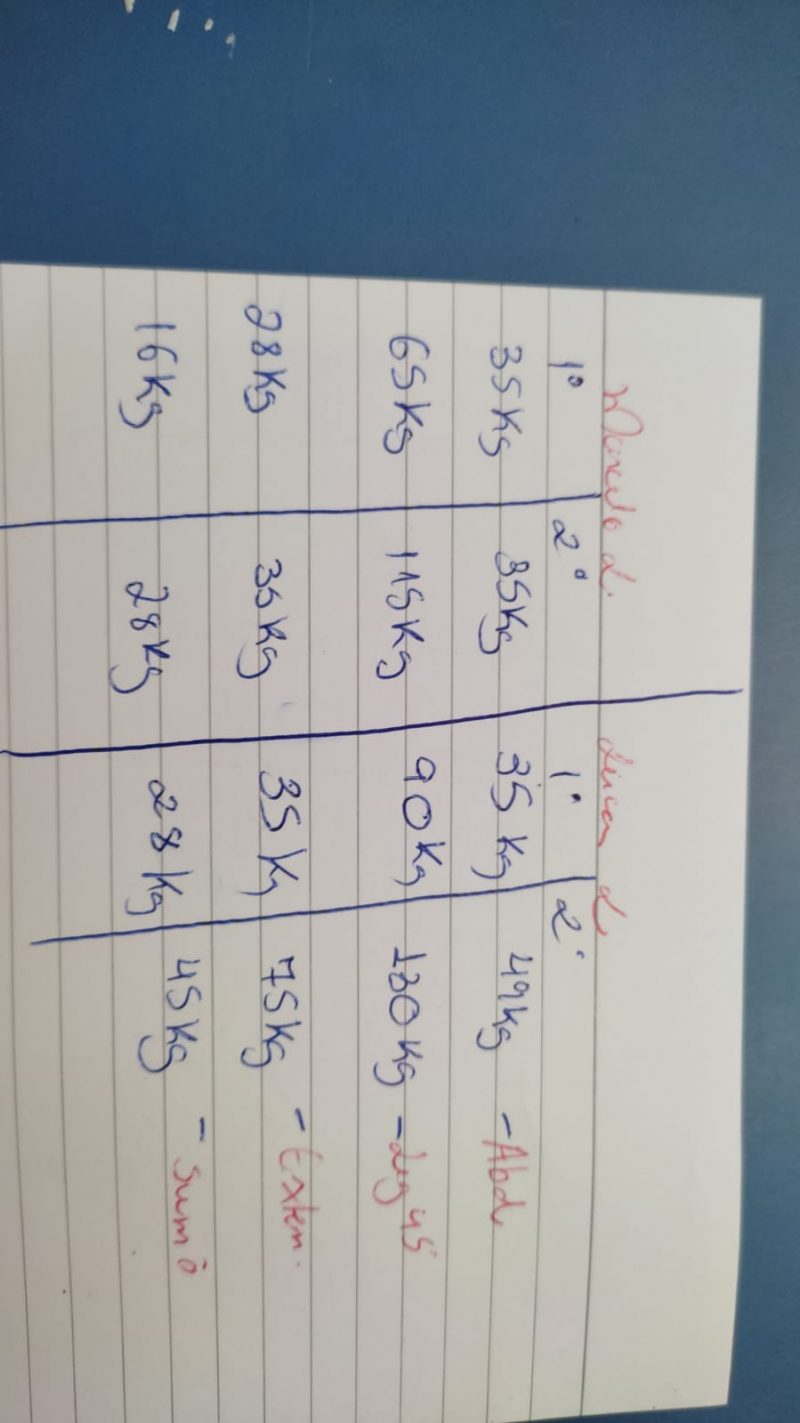 1º 2º 1º 2º
35Kg 35Kg 35Kg 49Kg - Abd
65Kg 115Kg 90Kg 130Kg - Leg 45
28Kg 35Kg 35Kg 75Kg - Exten.
16Kg 28Kg 28Kg 45Kg - Sumô